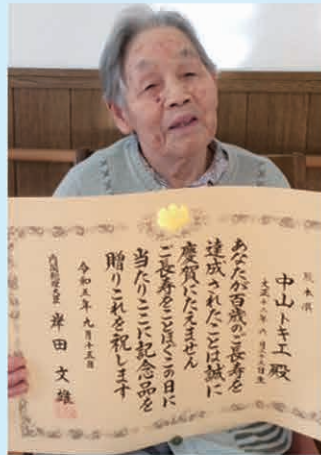 熊本県
中山トキエ殿
あなたが百歳のご長寿を
達成されたことは誠に
慶賀にたえません
ご長寿をことほぐこの日に
当たりここに記念品を
贈りこれを祝します
令和五年九月十五日
内閣総理大臣 岸田文雄